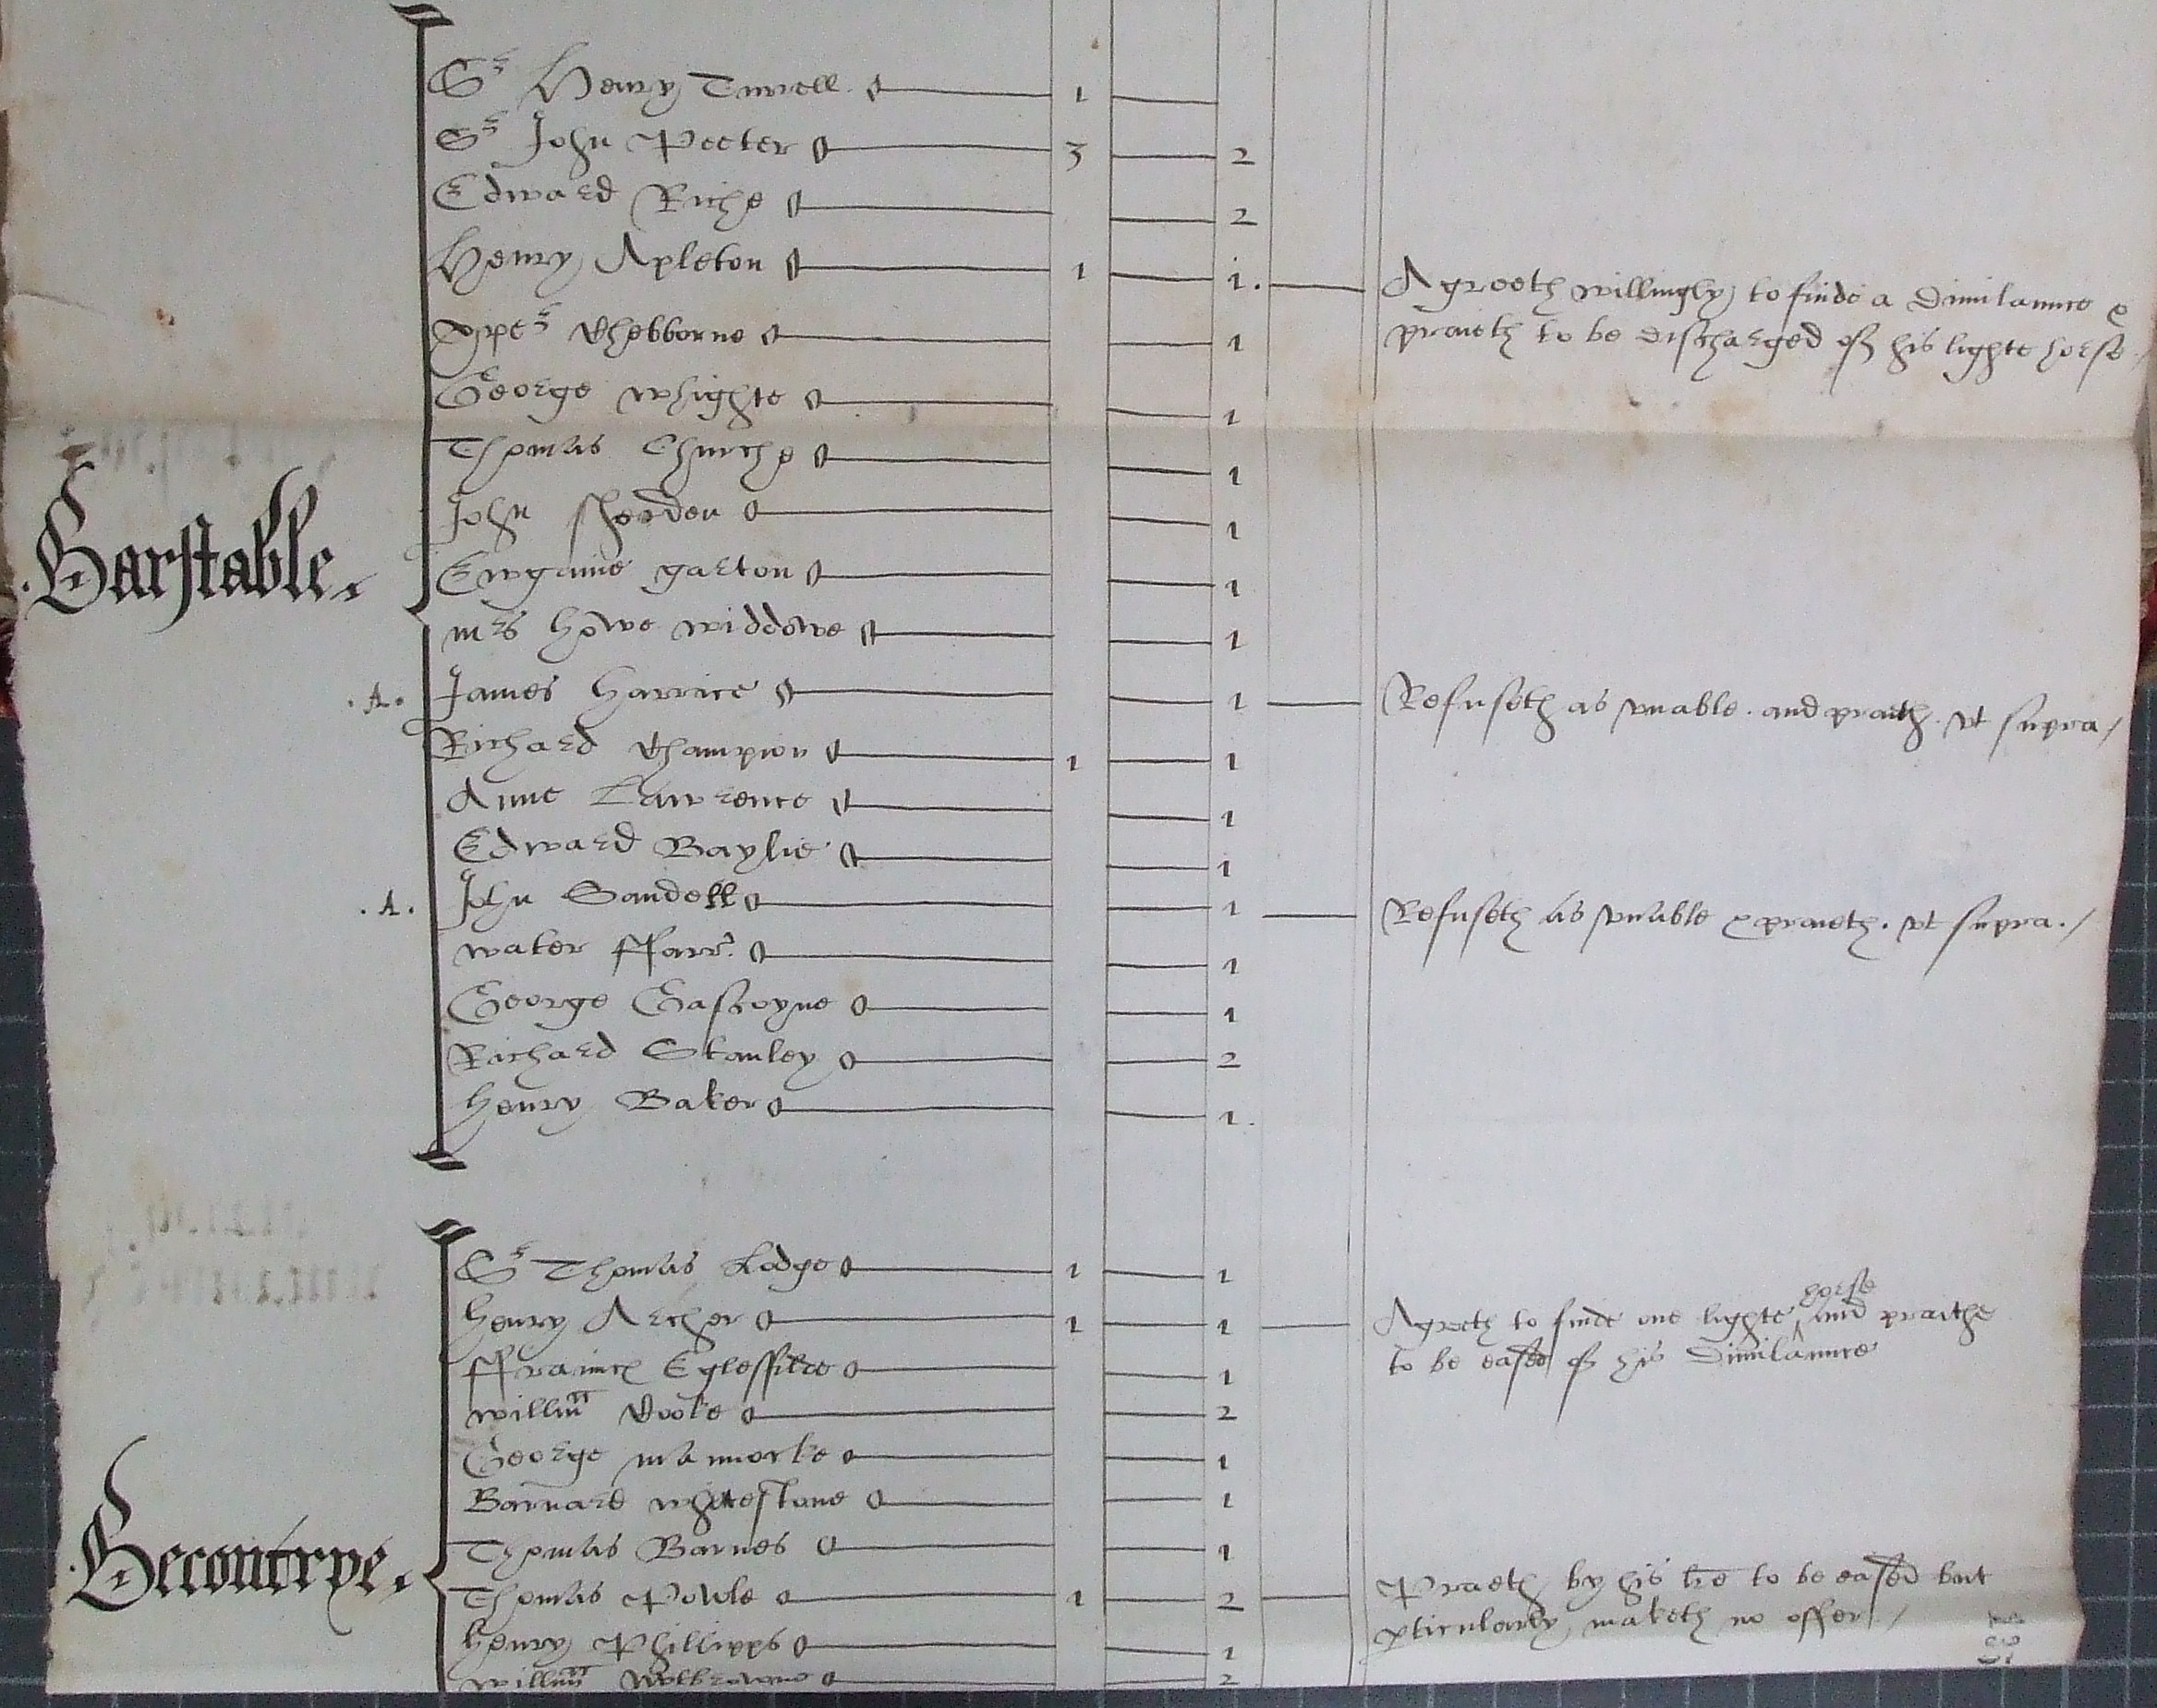 Sr Henry Tirrell 1
Sr John Peeter 3 2
Edward Riche 2
Henry Apleton 1 1. Agreeth willingly to finde a dimilaunce &
praieth to be discharged of his lighte horse /
xpper Chebborne 1
George whighte 1
Thomas Churche 1
John 1
Ewgame garton 1
mrs howe widdowe 1
Barstable.
.A. James Harrice 1 Refuseth as vnable. and praieth. vt supra /
Richard Champion 1 1
Anne Lawrence 1
Edward Baylie 1
.A. John Sandell 1 Refuseth as vnable & praieth. vt supra. /
water ffarr 1
George Gascoyne 1
Richard Stanley 2
Henry Baker 1.
Sr Thomas Lodge 1 1
Henry Archer 1 1 Agreeth to finde one lighte horse and praithe
to be eased of his Dimilaunce
ffraunch Eglesfilde 1
willm Cooke 2
George mannocke 1
Barnard whetestone 1
Thomas Barnes 1
Becontrye.
Thomas Powle 1 2 Praeth by his lre to be eased but
pticularly maketh no offer. /
henry Phillipps 1
willm 2